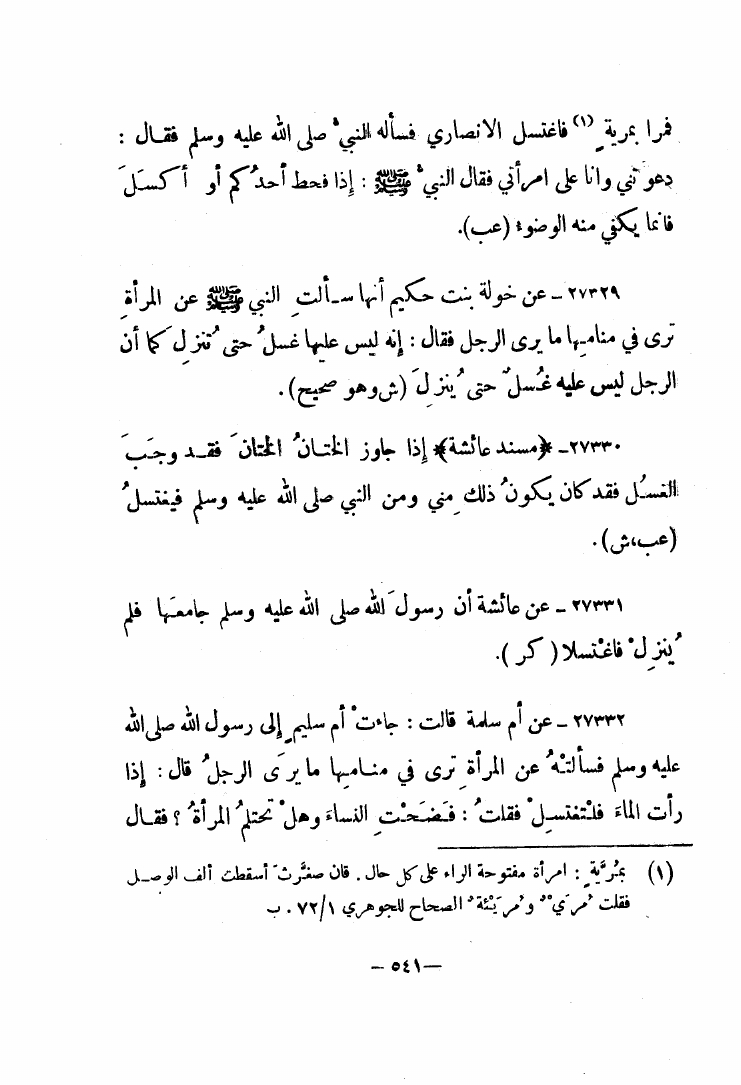 فمرا بمرية (١) فاغتسل الانصاري فسأله النبيُّ صلى الله عليه وسلم فقال :
دعوتَني وانا على امرأتي فقال النبيُّ ﷺ : إذا فحط أحدُكم أو أكسَلَ
فانما يكفي منه الوضوء (عب).
٢٧٣٢٩ ـ عن خولة بنت حكيم أنها سألتِ النبي ﷺ عن المرأةِ
ترى في منامها ما يرى الرجل فقال : إنه ليس عليها غسلُ حتى تُنزِلَ كما أن
الرجل ليس عليه غُسلٌ حتى يُنزِلَ (ش وهو صحيح).
٢٧٣٣٠ ـ ﴿مسند عائشة﴾ إذا جاوز الختانُ الختانَ فقد وجَبَ
الغسُل فقد كان يكونُ ذلك مِني ومن النبي صلى الله عليه وسلم فيغتسلُ
(عب،ش).
٢٧٣٣١ ـ عن عائشة أن رسولَ الله صلى الله عليه وسلم جامعَها فلم
يُنزِلْ فاغْتسلا (كر).
٢٧٣٣٢ ـ عن أم سلمة قالت : جاءتْ أم سليمٍ إلى رسول الله صلى الله
عليه وسلم فسألتْهُ عن المرأةِ ترى في منامِها ما يرَى الرجلُ قال : إذا
رأت الماءَ فلْتغتسِلْ فقلتُ : فَضَحْتِ النساءَ وهلْ تحتلمُ المرأةُ ؟ فقال
(١) بمُرَيَّةٍ : امرأة مفتوحة الراء على كل حال . فان صغَّرتَ أسقطت ألف الوصل
فقلت مُرَيْءٌ ومُرَيْئَةٌ الصحاح للجوهري ٧٢/١ . ب
— ٥٤١ —